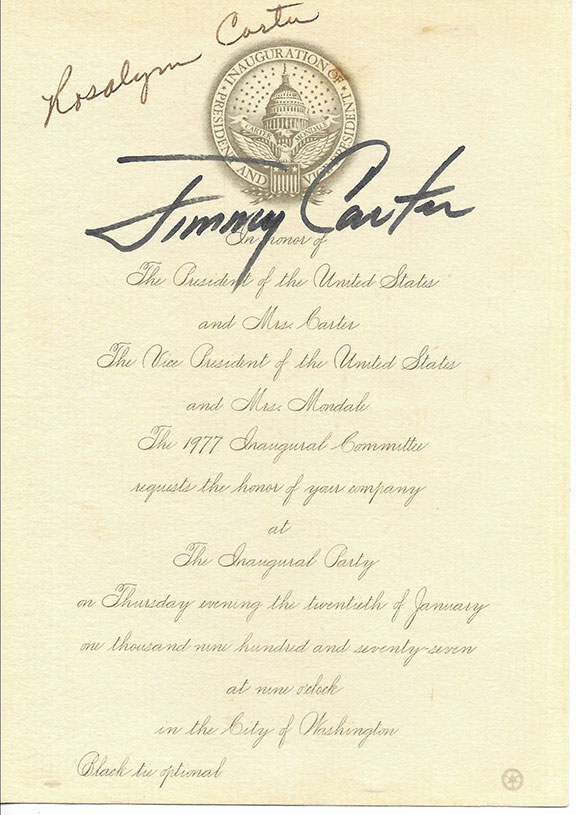 Rosalynn Carter
PRESIDENT AND VICE PRESIDENT • INAUGURATION OF •
CARTER MONDALE
Jimmy Carter
In honor of
The President of the United States
and Mrs. Carter
The Vice President of the United States
and Mrs. Mondale
The 1977 Inaugural Committee
requests the honor of your company
at
The Inaugural Party
on Thursday evening the twentieth of January
one thousand nine hundred and seventy-seven
at nine o'clock
in the City of Washington
Black tie optional